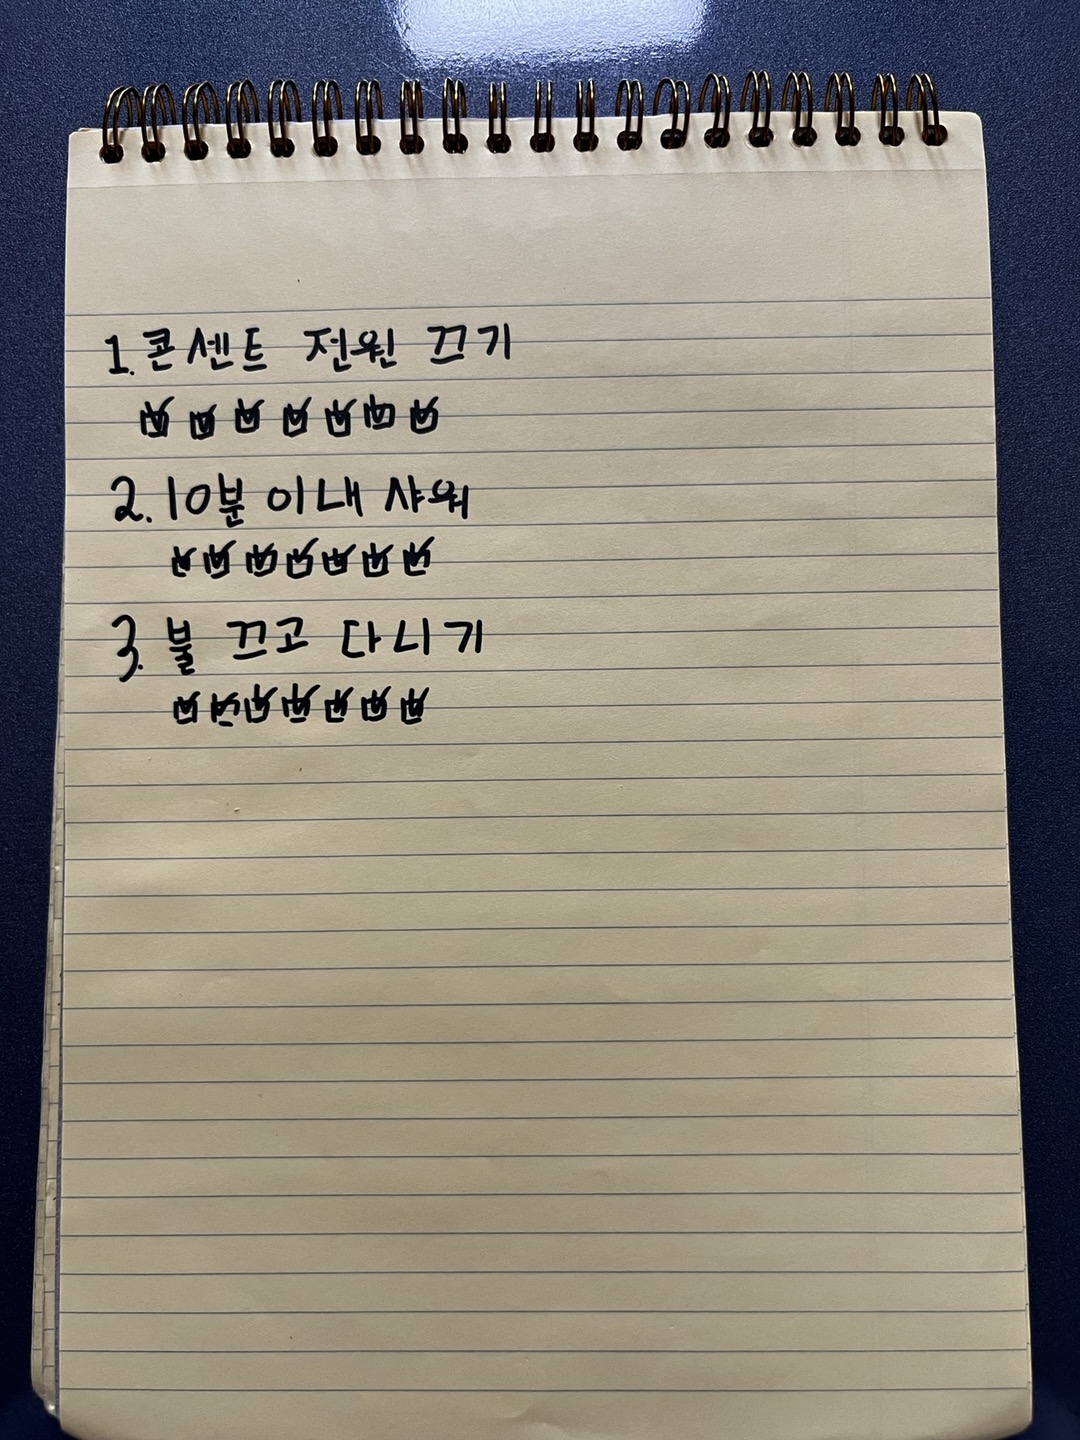 1. 콘센트 전원 끄기
☑ ☑ ☑ ☑ ☑ ☑ ☑
2. 10분 이내 샤워
☑ ☑ ☑ ☑ ☑ ☑ ☑
3. 불 끄고 다니기
☑ ☑ ☑ ☑ ☑ ☑ ☑